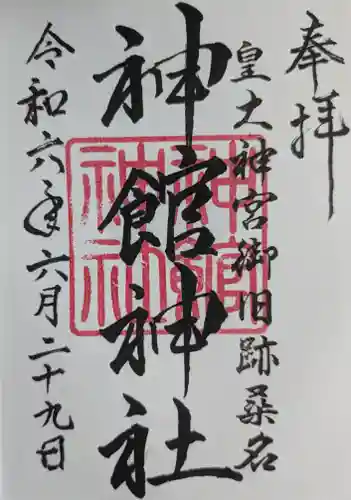 奉拝
皇大神宮御旧跡桑名
神館神社
令和六年六月二十九日
神館神社